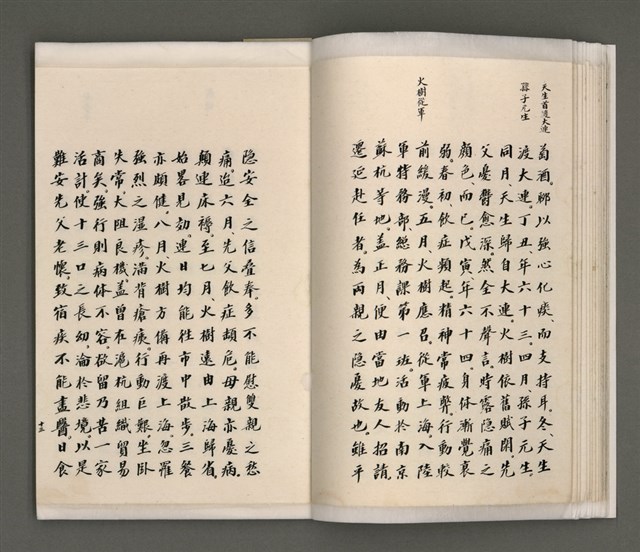 天生首渡大連
孫子元生
萄酒。聊以強心化痰、而支持耳。冬、天生
渡大連。丁丑年六十三。四月、孫子元生、
同月、天生歸自大連。火樹依舊賦閑。先
父憂鬱愈深。然全不聲言。時露隱痛之
顏色、而已。戊寅年六十四。身体漸覺衰
弱。春初飲症頻起。精神常疲弊。行動較
前緩漫。五月、火樹應召。從軍上海。入陸
軍特務部、總務課第一班。活動於南京
蘇杭等地。蓋正月、便由當地友人招請。
遷延赴任者。為兩親之隱憂故也。雖平
火樹從軍
隐安全之信疊奉。多不能慰雙親之愁
痛。迨六月、先父飲症頗危。母親亦憂病。
顛連床褥。至七月、火樹遠由上海歸省。
始畧見効。連日均能往市中散步。三餐
亦頗健。八月、火樹方備再渡上海。忽罹
強烈之濕疹。滿背瘡痍。行動巨艱。坐卧
失常。大阻良機。蓋曾在滬杭組織貿易
商矣。強行則病体不容。欲留乃苦一家
活計。使十三口之長幼、淪於悲境。以是
難安先父老懷。致宿疾不能盡醫。日食
十三